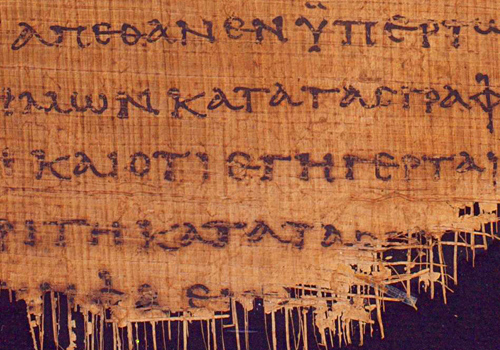 ΑΠΕΘΑΝΕΝΫΠΕΡΤΩ
ΜΩΝΚΑΤΑΤΑϹΓΡΑΦ
ΚΑΙΟΤΙΕΓΗΓΕΡΤΑΙ
ΡΙΤΗΚΑΤΑΤΑϹ
ΦΑΕ